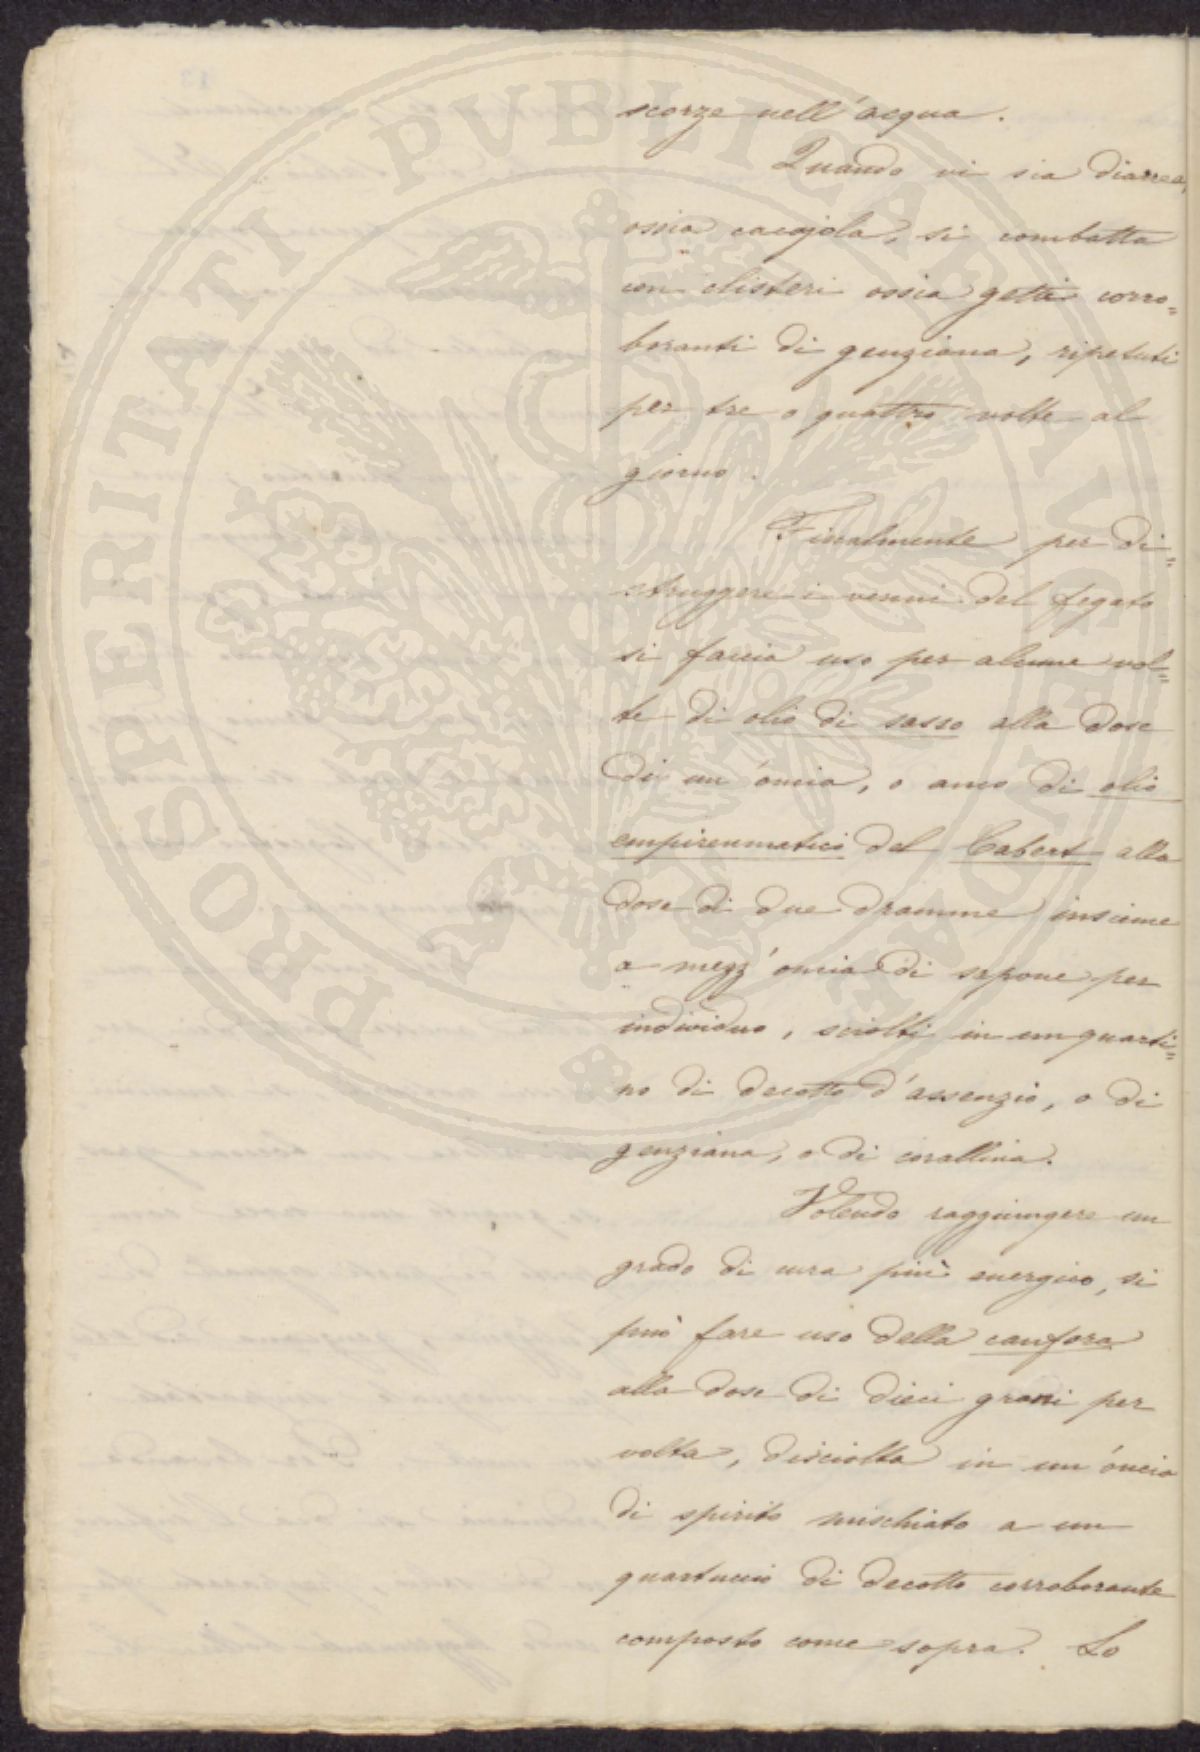 scorze nell'acqua.
Quando vi sia diarrea,
ossia cacajola, si combatta
con clisteri ossia getti corro=
boranti di genziana, ripetuti
per tre o quattro volte al
giorno.
Finalmente per di=
struggere i vermi del fegato
si faccia uso per alcune vol=
te di olio di sasso alla dose
di un'oncia, o anco di olio
empireumatico del Cabert alla
dose di due dramme insieme
a mezz'oncia di sapone per
individuo, sciolti in un quarti=
no di decotto d'assenzio, o di
genziana, o di corallina.
Volendo raggiungere un
grado di cura più energico, si
può fare uso della canfora
alla dose di dieci grani per
volta, disciolta in un'oncia
di spirito mischiato a un
quartuccio di decotto corroborante
composto come sopra. Lo
PROSPERITATI PVBLICAE AVGENDAE